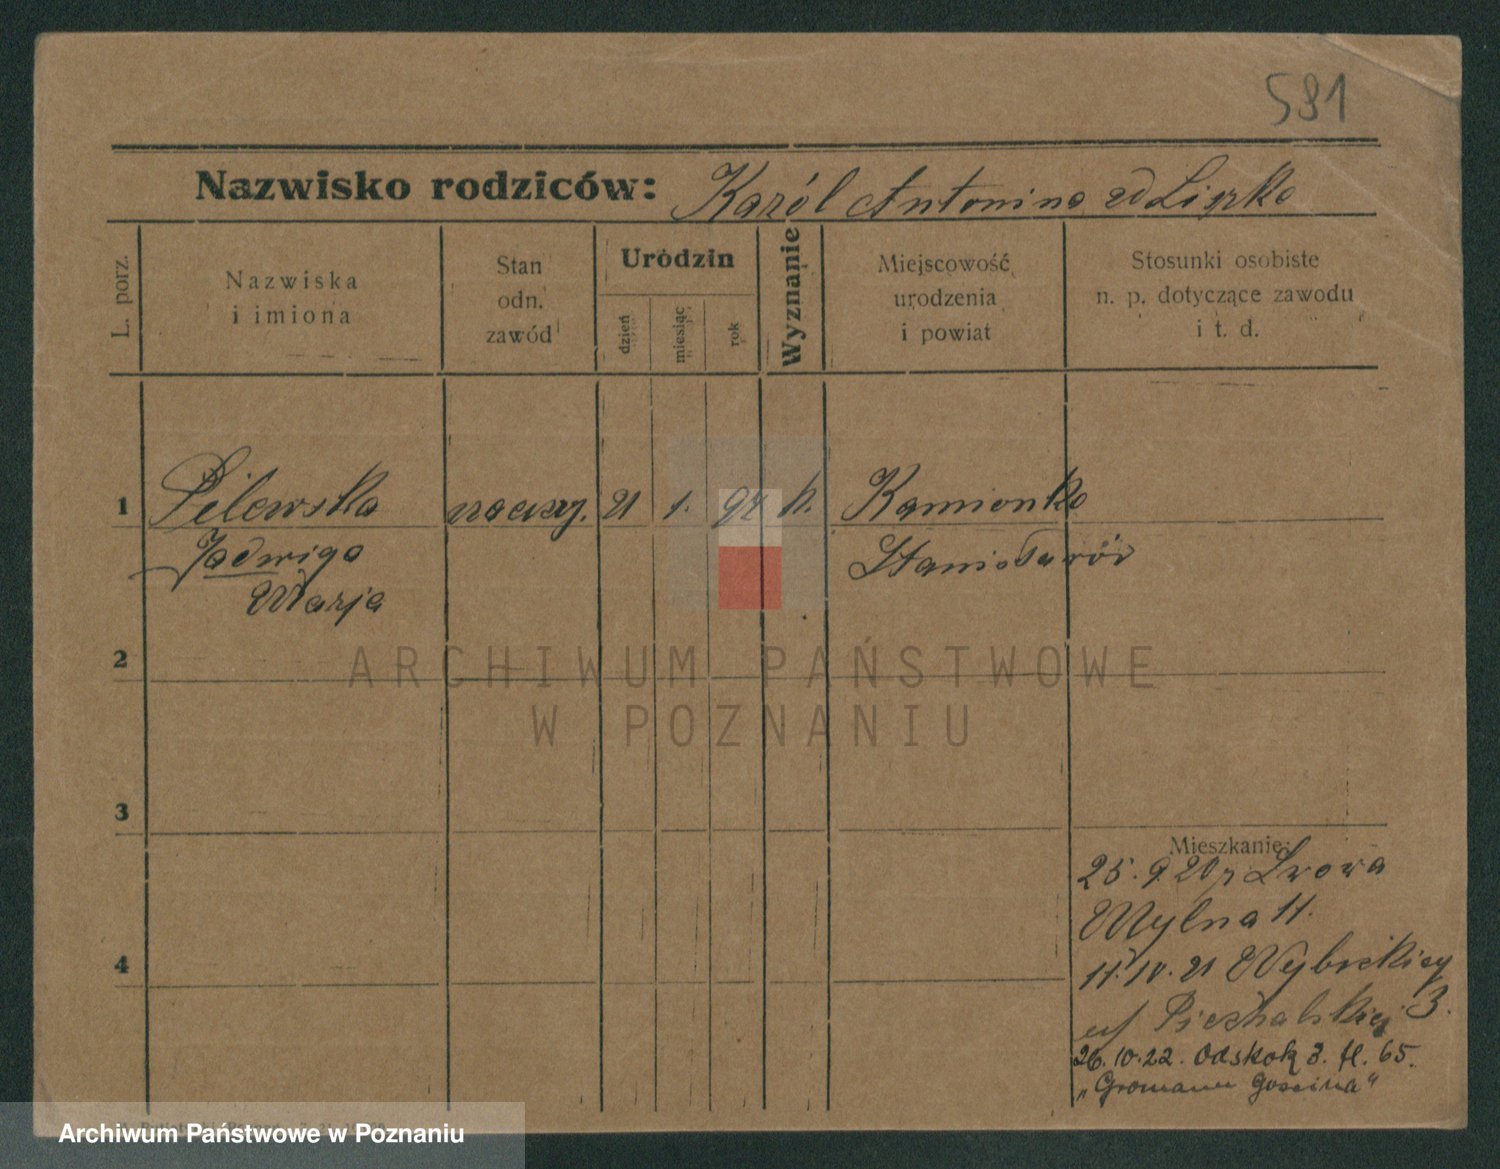 581
Nazwisko rodziców: Karól Antonina zd Lipka
L. porz.
Nazwiska
i imiona
Stan
odn.
zawód
Urodzin
dzień
miesiąc
rok
Wyznanie
Miejscowość
urodzenia
i powiat
Stosunki osobiste
n. p. dotyczące zawodu
i t. d.
1 Pilewska nauczy. 21 1. 97 k. Kamionka
Jadwiga Stanisławów
Marja
2
3
4
Mieszkanie:
25.9.20 z Lwowa
Wylna 11.
11.IV.21 Wybickiej
3.
u Piechalskiej
26.10.22. Odskok 3. tl. 65.
ARCHIWUM PAŃSTWOWE
W POZNANIU
Archiwum Państwowe w Poznaniu